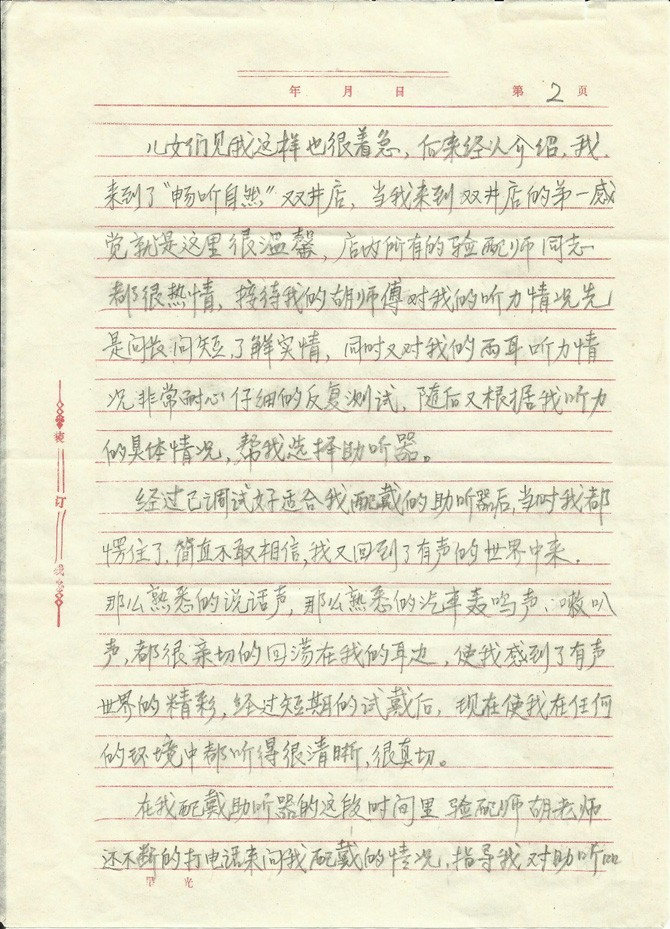 年 月 日 第 2 页
儿女们见我这样也很着急，后来经人介绍，我
来到了“畅听自然”双井店，当我来到双井店的第一感
觉就是这里很温馨，店内所有的验配师同志
都很热情，接待我的胡师傅对我的听力情况先
是问长问短，了解实情，同时又对我的两耳听力情
况非常耐心仔细的反复测试，随后又根据我听力
的具体情况，帮我选择助听器。
经过已调试好适合我配戴的助听器后，当时我都
愣住了，简直不敢相信，我又回到了有声的世界中来，
那么熟悉的说话声，那么熟悉的汽车轰鸣声、嗽叭
声，都很亲切的回荡在我的耳边，使我感到了有声
世界的精彩，经过短期的试戴后，现在使我在任何
的环境中都听得很清晰，很真切。
在我配戴助听器的这段时间里验配师胡老师
还不断的打电话来问我配戴的情况，指导我对助听
订